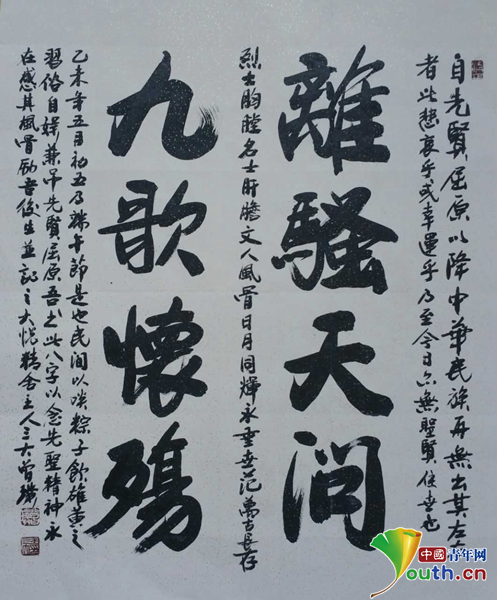 自先賢屈原以降中華民族再無出其左右
者此悲哀乎或幸運乎乃至今日亦無聖賢住世也
離騷天問
烈士胸膛名士肝膽文人風骨日月同輝永垂世範萬古長存
九歌懷殤
乙未年五月初五乃端午節是也民間以啖粽子飲雄黃之
習俗自娛兼弔先賢屈原吾書此八字以念先聖精神永
在感其風骨勵吾後生並記之大悅精舍主人三大曾
中國青年网
Youth.cn